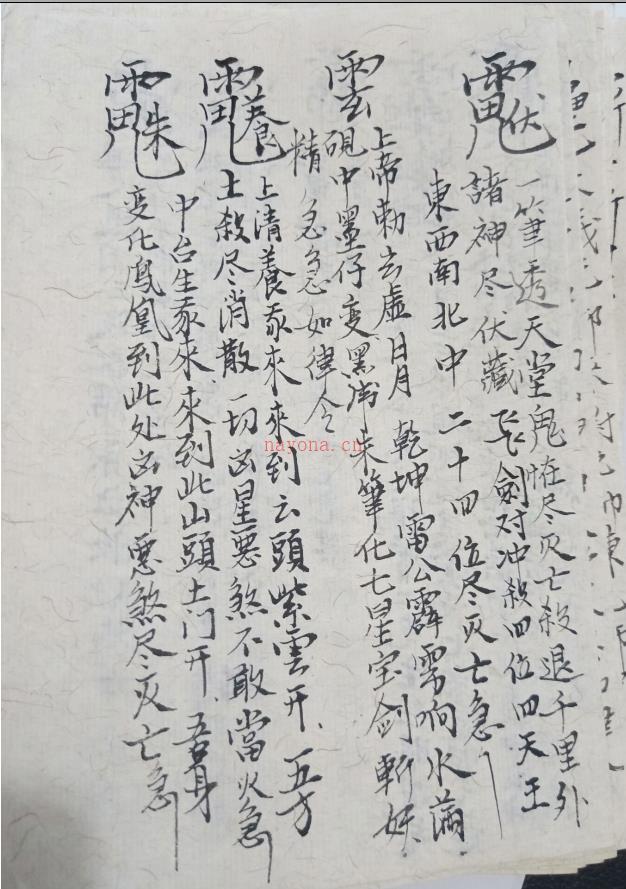 一筆透天堂鬼怪尽灭亡殺退千里外
諸神尽伏藏 飞劍对冲殺四位四天王
東西南北中 二十四位尽灭亡急
雲
上帝勅 虚日月 乾坤雷公霹雳响水滴
硯中墨仔变黑 朱筆化七星宝劍斬妖
精急急如律令
上清養炁來來到云頭紫雲开 五方
土殺尽消散一切凶星惡煞不敢當火急
中台生炁來來到此山頭土门开 吾身
变化鳳凰到此处凶神惡煞尽灭亡急
nayona.cn